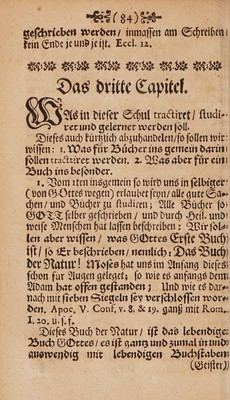 (84)
geschrieben werden / inmassen am Schreiben
kein Ende je und je ist. Eccl. 12.
Das dritte Capitel.
WAs in dieser Schul tractiret / studi-
ret und gelernet werden soll.
Dieses auch kürtzlich abzuhandeln / so sollen wir
wissen: 1. Was für Bücher ins gemein darin
sollen tractiret werden. 2. Was aber für ein
Buch ins besonder.
1. Vom 1ten insgemein so wird uns in selbiger
(von Gottes wegen) erlaubet seyn / alle gute Sa-
chen / und Bücher zu studiren; Alle Bücher so
GOTT selber geschrieben / und durch Heil. und
weise Menschen hat lassen beschreiben: Wir sol-
len aber wissen / was GOttes Erste Buch
ist / so Er beschrieben / nemlich: Das Buch
der Natur! Moses hat uns im Anfang dieses
schon für Augen geleget / so wie es anfangs dem
Adam hat offen gestanden; Und wie es dar-
nach mit sieben Siegeln sey verschlossen wor-
den. Apoc. V. Conf. v. 8. & 19. ganß mit Rom.
I. 20. u. s. f.
Dieses Buch der Natur / ist das lebendige
Buch GOttes / es ist gantz und zumal in und
auswendig mit lebendigen Buchstaben
(Geister)